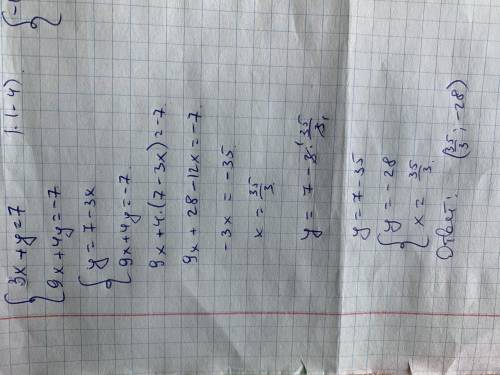 { 3x + y = 7 | · (-4)
{ 9x + 4y = -7
{ y = 7 - 3x
{ 9x + 4y = -7.
9x + 4 · (7 - 3x) = -7
9x + 28 - 12x = -7.
-3x = -35
x = 35/3
y = 7 - 3 · 35/3
y = 7 - 35
{ y = -28
{ x = 35/3.
Ответ: (35/3; -28)